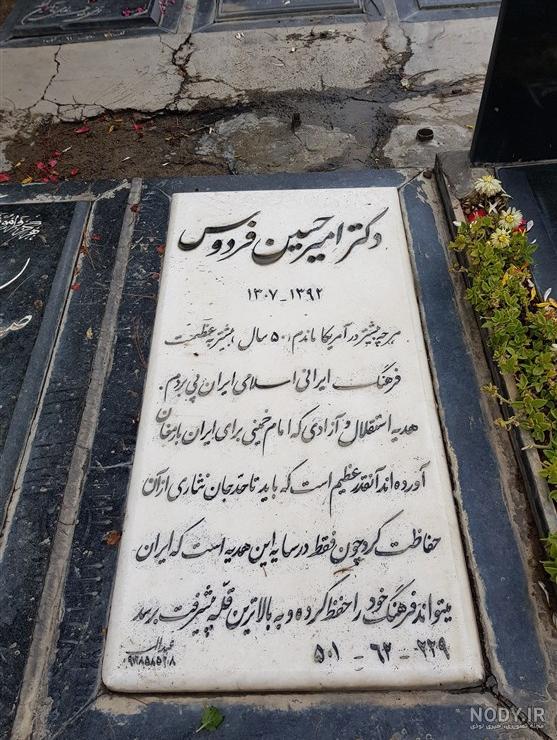 دکتر امیرحسین فردوس
۱۳۰۷-۱۳۹۲
هرچه بیشتر در آمریکا ماندم، ۵۰ سال، بیشتر به عظمت
فرهنگ ایرانی اسلامی ایران پی بردم.
هدیه استقلال و آزادی که امام خمینی برای ایران بارمغان
آورده اند آنقدر عظیم است که باید تا حد جان نثاری از آن
حفاظت کرد چون فقط در سایه این هدیه است که ایران
میتواند فرهنگ خود را حفظ کرده و به بالاترین قله پیشرفت برسد
۵۰۱ - ۶۲ - ۲۲۹
NODY.IR
مجله تصویری، خبری نودی